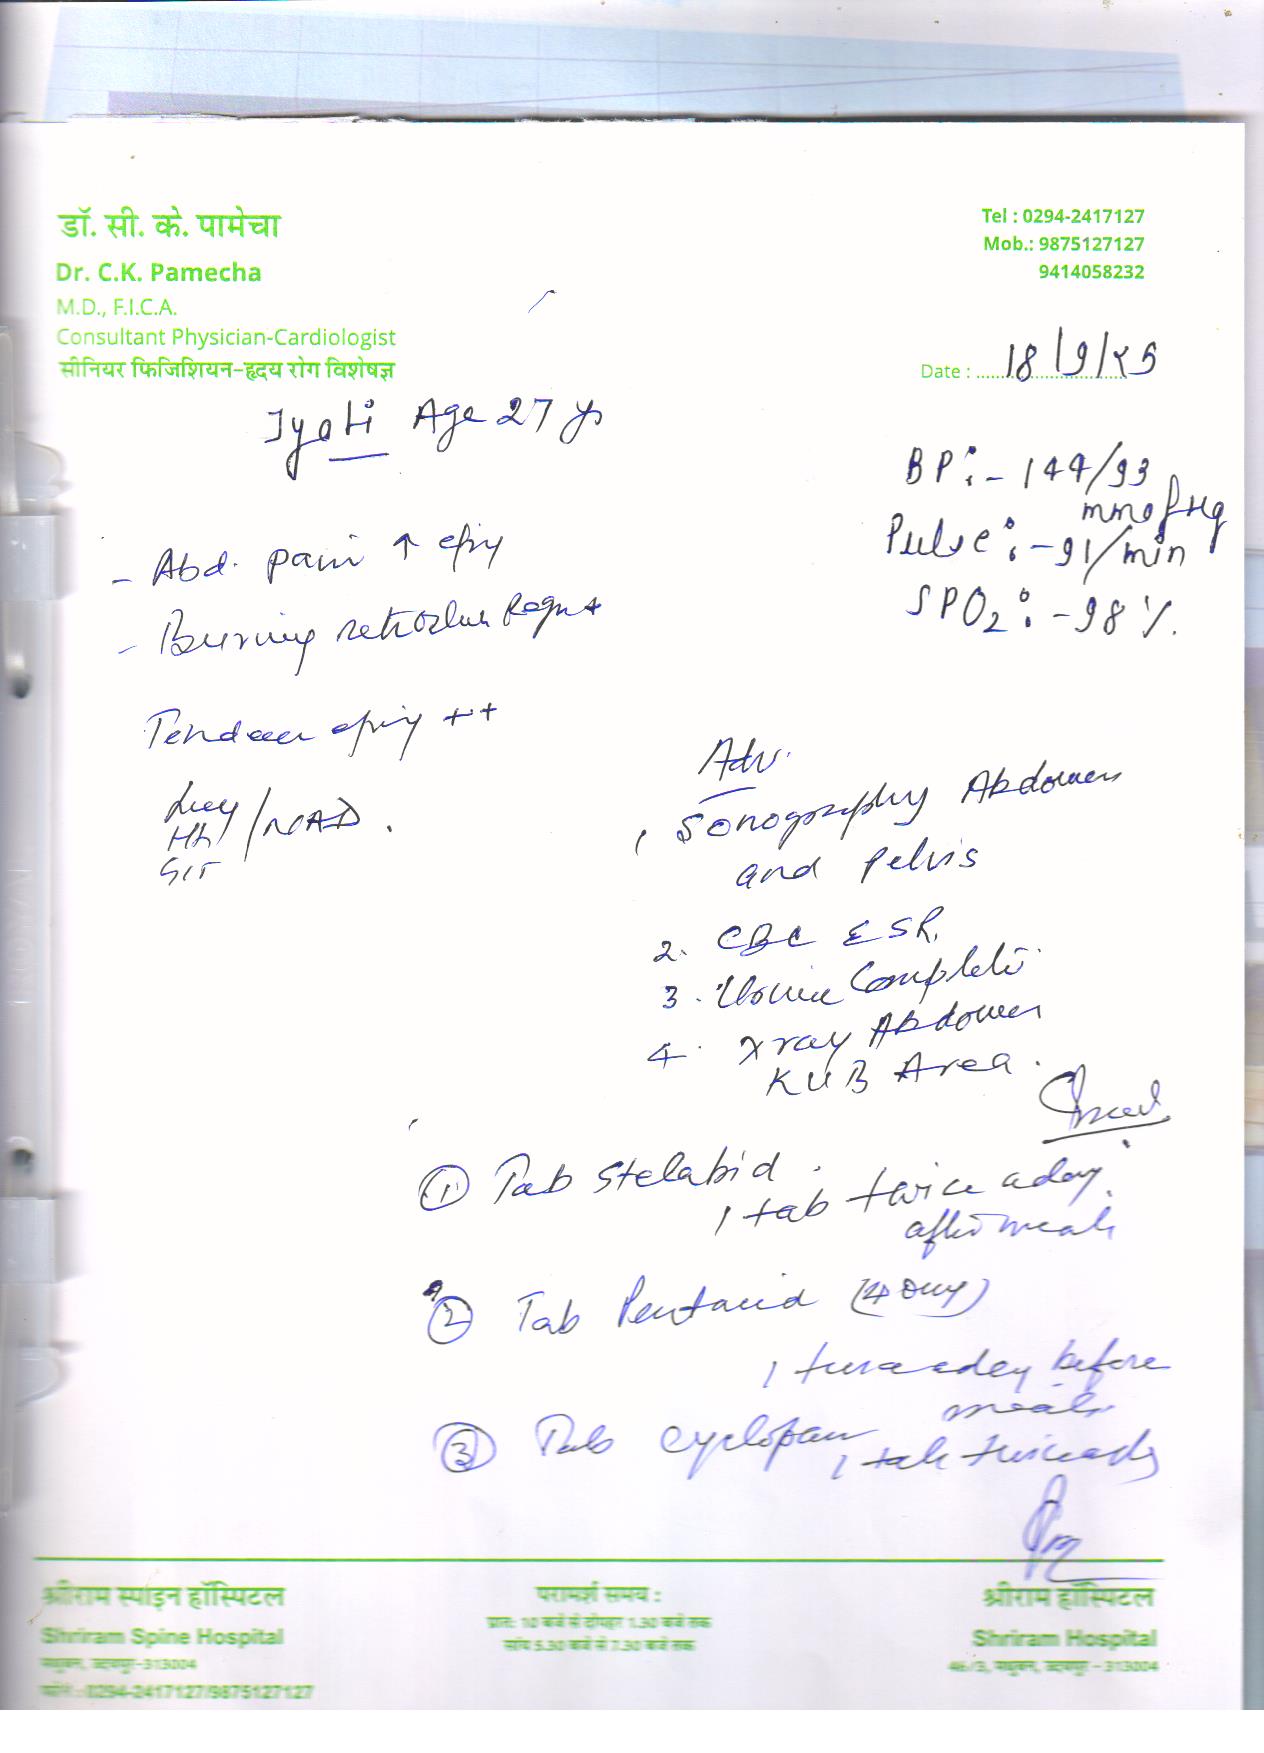 डॉ. सी. के. पामेचा
Dr. C.K. Pamecha
M.D., F.I.C.A.
Consultant Physician-Cardiologist
सीनियर फिजिशियन-हृदय रोग विशेषज्ञ
Tel : 0294-2417127
Mob.: 9875127127
9414058232
Date : 18/9/25
Jyoti Age 27 yr
BP:- 144/93
mmofHg
Pulse:- 91/min
SPO2:- 98 %.
- Abd. pain ↑ epig
- Burning
epig ++
/NAD.
Adv.
1, Sonography Abdomen
and Pelvis
2. CBC ESR,
3. Urine Complete
4. Xray Abdomen
KUB Area.
① Tab Stelabid.
1 tab twice a day.
after meals
② Tab Pentacid (40mg)
1 twice a day before
meals
③ Tab cyclopam
1 tab twice a day
श्रीराम स्पाइन हॉस्पिटल
Shriram Spine Hospital
मधुबन, उदयपुर-313004
फोन : 0294-2417127/9875127127
परामर्श समय :
प्रातः 10 बजे से दोपहर 1.30 बजे तक
सांय 5.30 बजे से 7.30 बजे तक
श्रीराम हॉस्पिटल
Shriram Hospital
46/3, मधुबन, उदयपुर - 313004